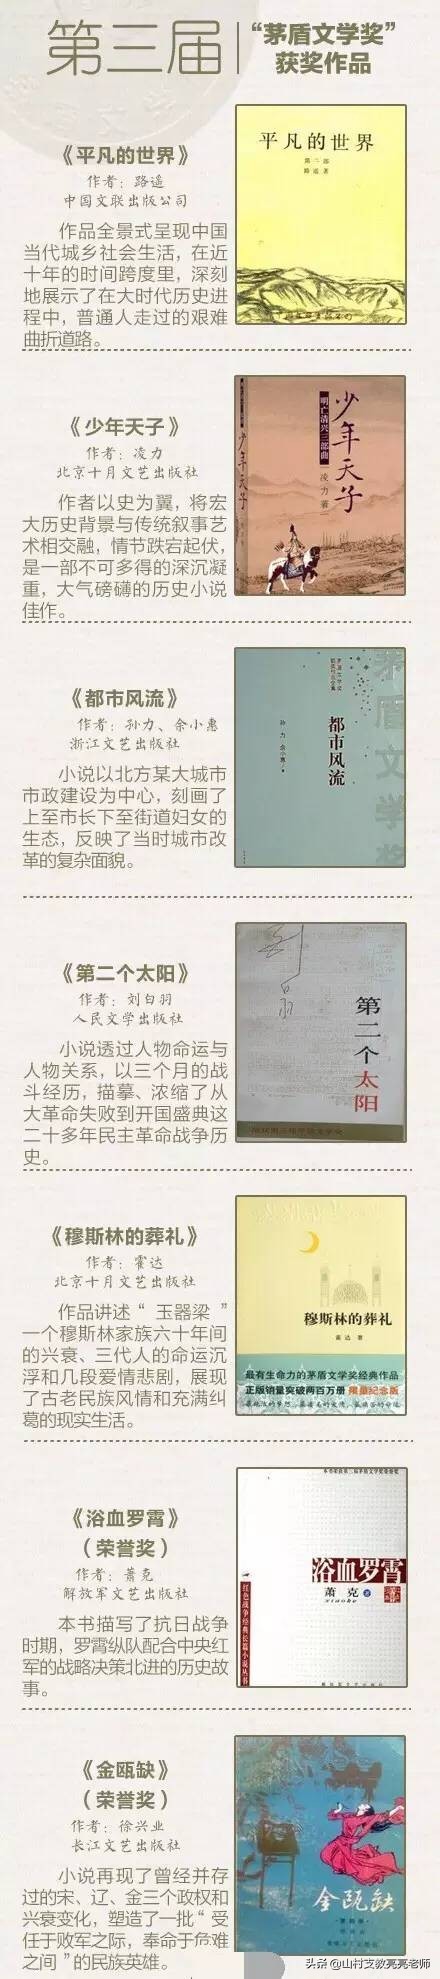 第三届
“茅盾文学奖”
获奖作品
《平凡的世界》
作者：路遥
中国文联出版公司
作品全景式呈现中国
当代城乡社会生活，在近
十年的时间跨度里，深刻
地展示了在大时代历史进
程中，普通人走过的艰难
曲折道路。
平凡的世界
第二部
路遥著
《少年天子》
作者：凌力
北京十月文艺出版社
作者以史为翼，将宏
大历史背景与传统叙事艺
术相交融，情节跌宕起伏，
是一部不可多得的深沉凝
重，大气磅礴的历史小说
佳作。
少年天子
明亡清兴三部曲
凌力著
少年天子
《都市风流》
作者：孙力、余小惠
浙江文艺出版社
小说以北方某大城市
市政建设为中心，刻画了
上至市长下至街道妇女的
生态，反映了当时城市改
革的复杂面貌。
茅盾文学奖
茅盾文学奖
获奖作品全集
都市风流
孙力 余小惠
《第二个太阳》
作者：刘白羽
人民文学出版社
小说透过人物命运与
人物关系，以三个月的战
斗经历，描摹、浓缩了从
大革命失败到开国盛典这
二十多年民主革命战争历
史。
第二个太阳
《穆斯林的葬礼》
作者：霍达
北京十月文艺出版社
作品讲述“玉器梁”
一个穆斯林家族六十年间
的兴衰、三代人的命运沉
浮和几段爱情悲剧，展现
了古老民族风情和充满纠
葛的现实生活。
穆斯林的葬礼
霍达 著
最有生命力的茅盾文学奖经典作品
正版销量突破两百万册 限量纪念版
《浴血罗霄》
（荣誉奖）
作者：萧克
解放军文艺出版社
本书描写了抗日战争
时期，罗霄纵队配合中央红
军的战略决策北进的历史故
事。
浴血罗霄
萧克 著
xiaoke
红色战争经典长篇小说丛书
《金瓯缺》
（荣誉奖）
作者：徐兴业
长江文艺出版社
小说再现了曾经并存
过的宋、辽、金三个政权和
兴衰变化，塑造了一批“受
任于败军之际，奉命于危难
之间”的民族英雄。
金瓯缺
头条 @山村支教亮亮老师